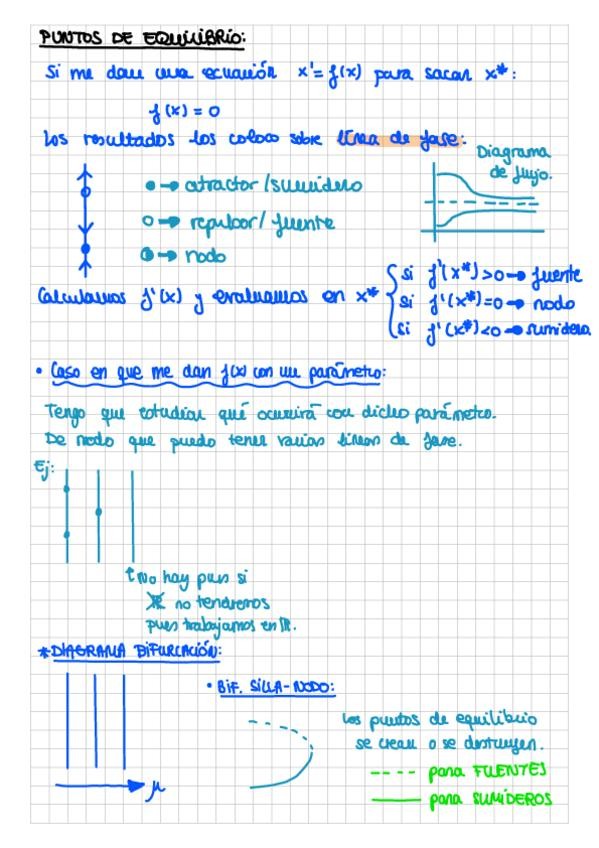 PUNTOS DE EQUILIBRIO:
Si me dan una ecuación x'= f(x) para sacar x*:
f(x) = 0
Los resultados los coloco sobre línea de fase:
Diagrama
de flujo.
→ atractor/sumidero
→ repulsor/fuente
→ nodo
Calculamos f'(x) y evaluamos en x*
si f'(x*)>0 → fuente
si f'(x*)=0 → nodo
si f'(x*)<0 → sumidero
• Caso en que me dan f(x) con un parámetro:
Tengo que estudiar qué ocurrirá con dicho parámetro.
De modo que puedo tener varias líneas de fase.
Ej:
↑ No hay pues si
no tendremos
pues trabajamos en ℝ.
* DIAGRAMA BIFURCACIÓN:
• BIF. SILLA-NODO:
Los puntos de equilibrio
se crean o se destruyen.
--- para FUENTES
— para SUMIDEROS
μ